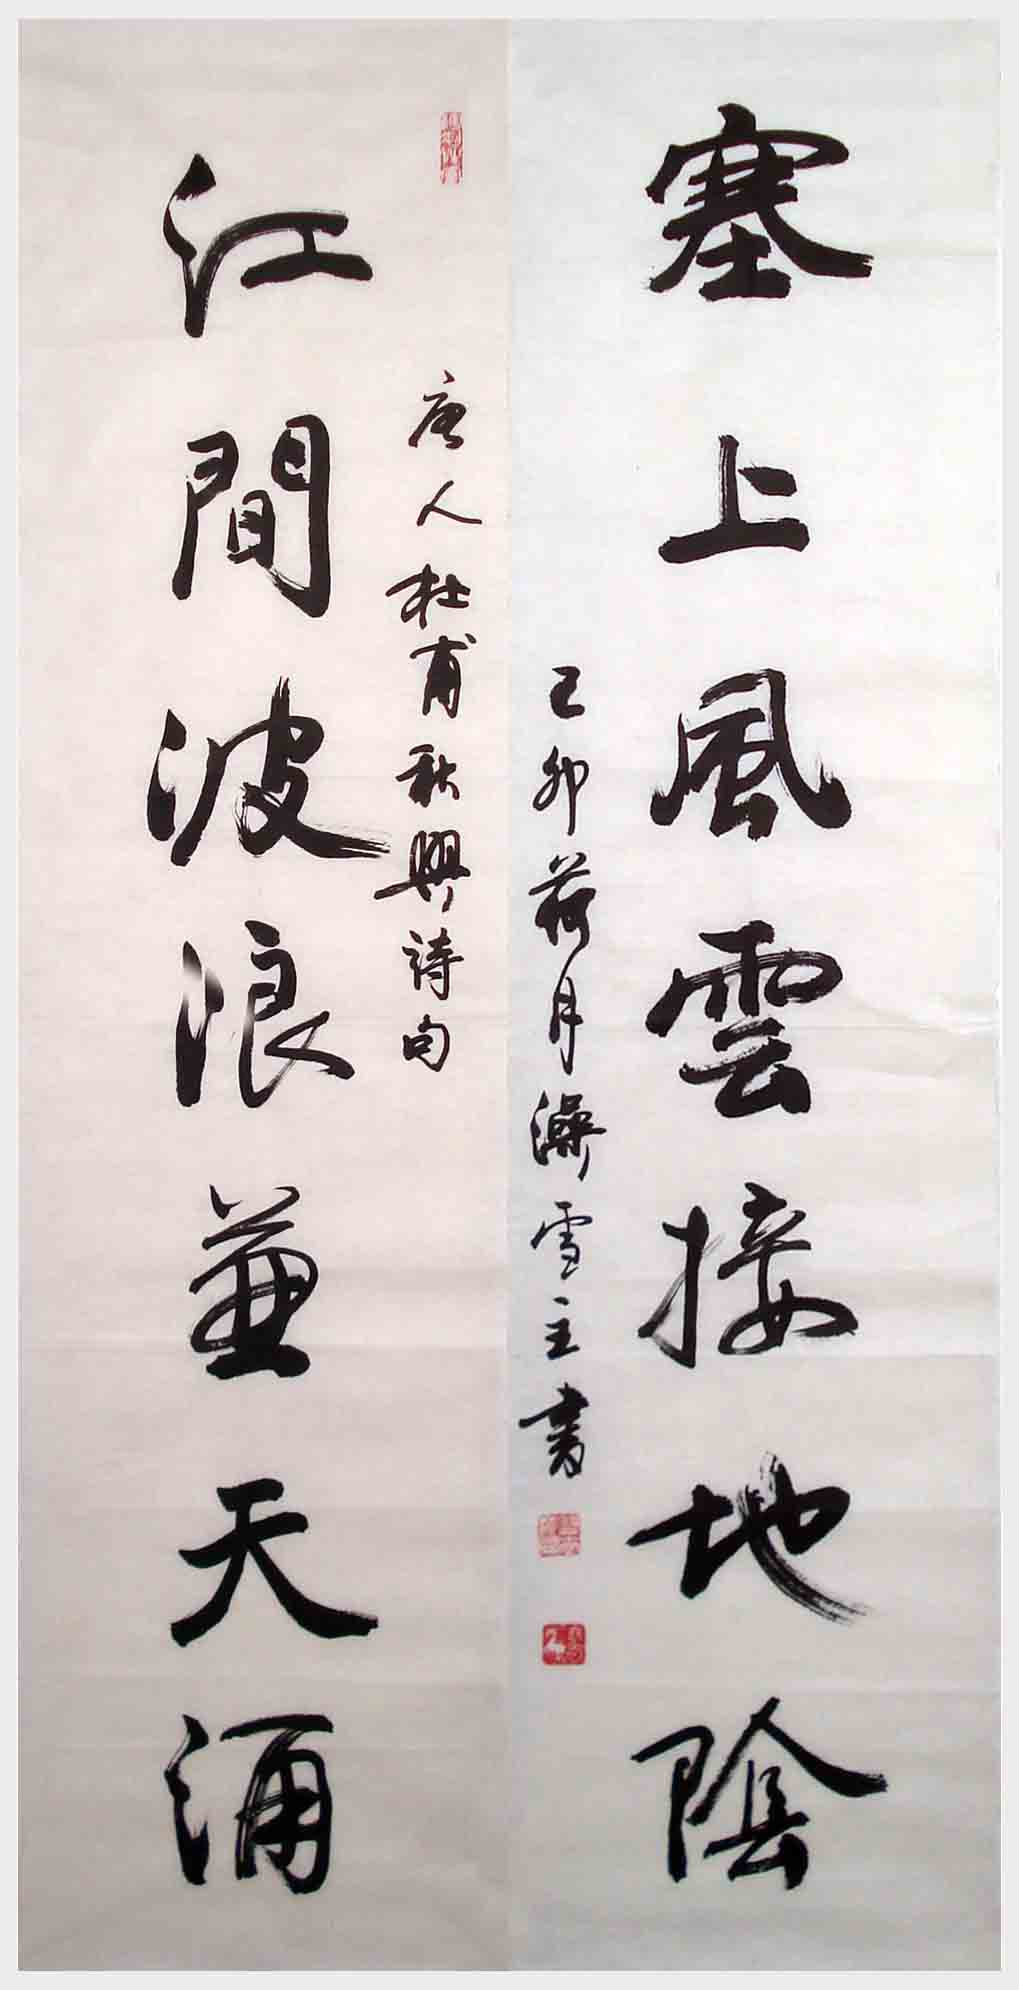 江間波浪兼天涌
唐人杜甫秋興詩句
己卯荷月澡雪主書
塞上風雲接地陰